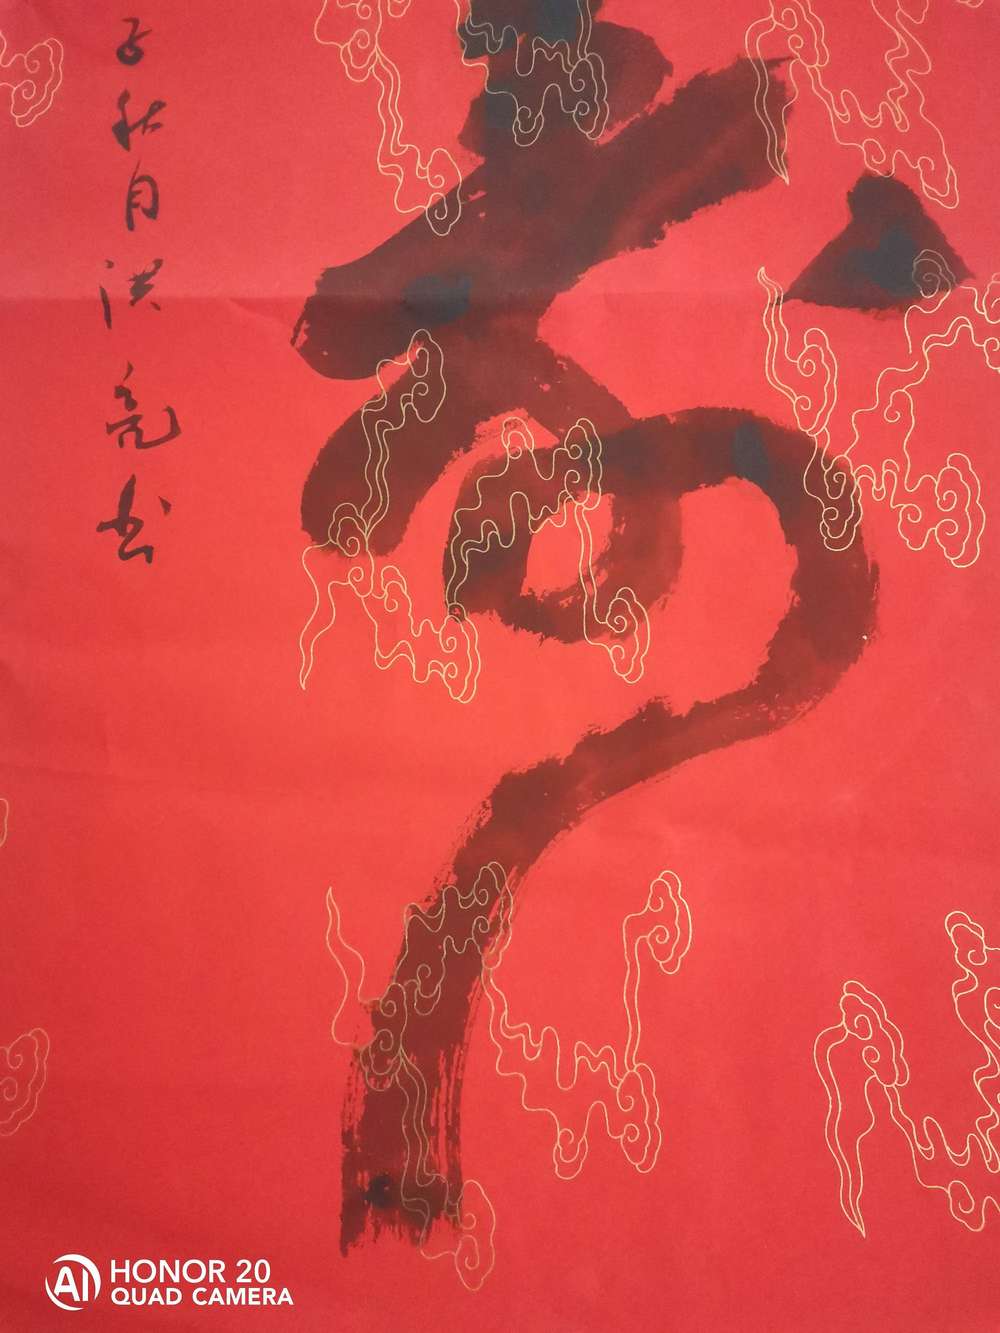 子秋月洪亮书
HONOR 20
QUAD CAMERA